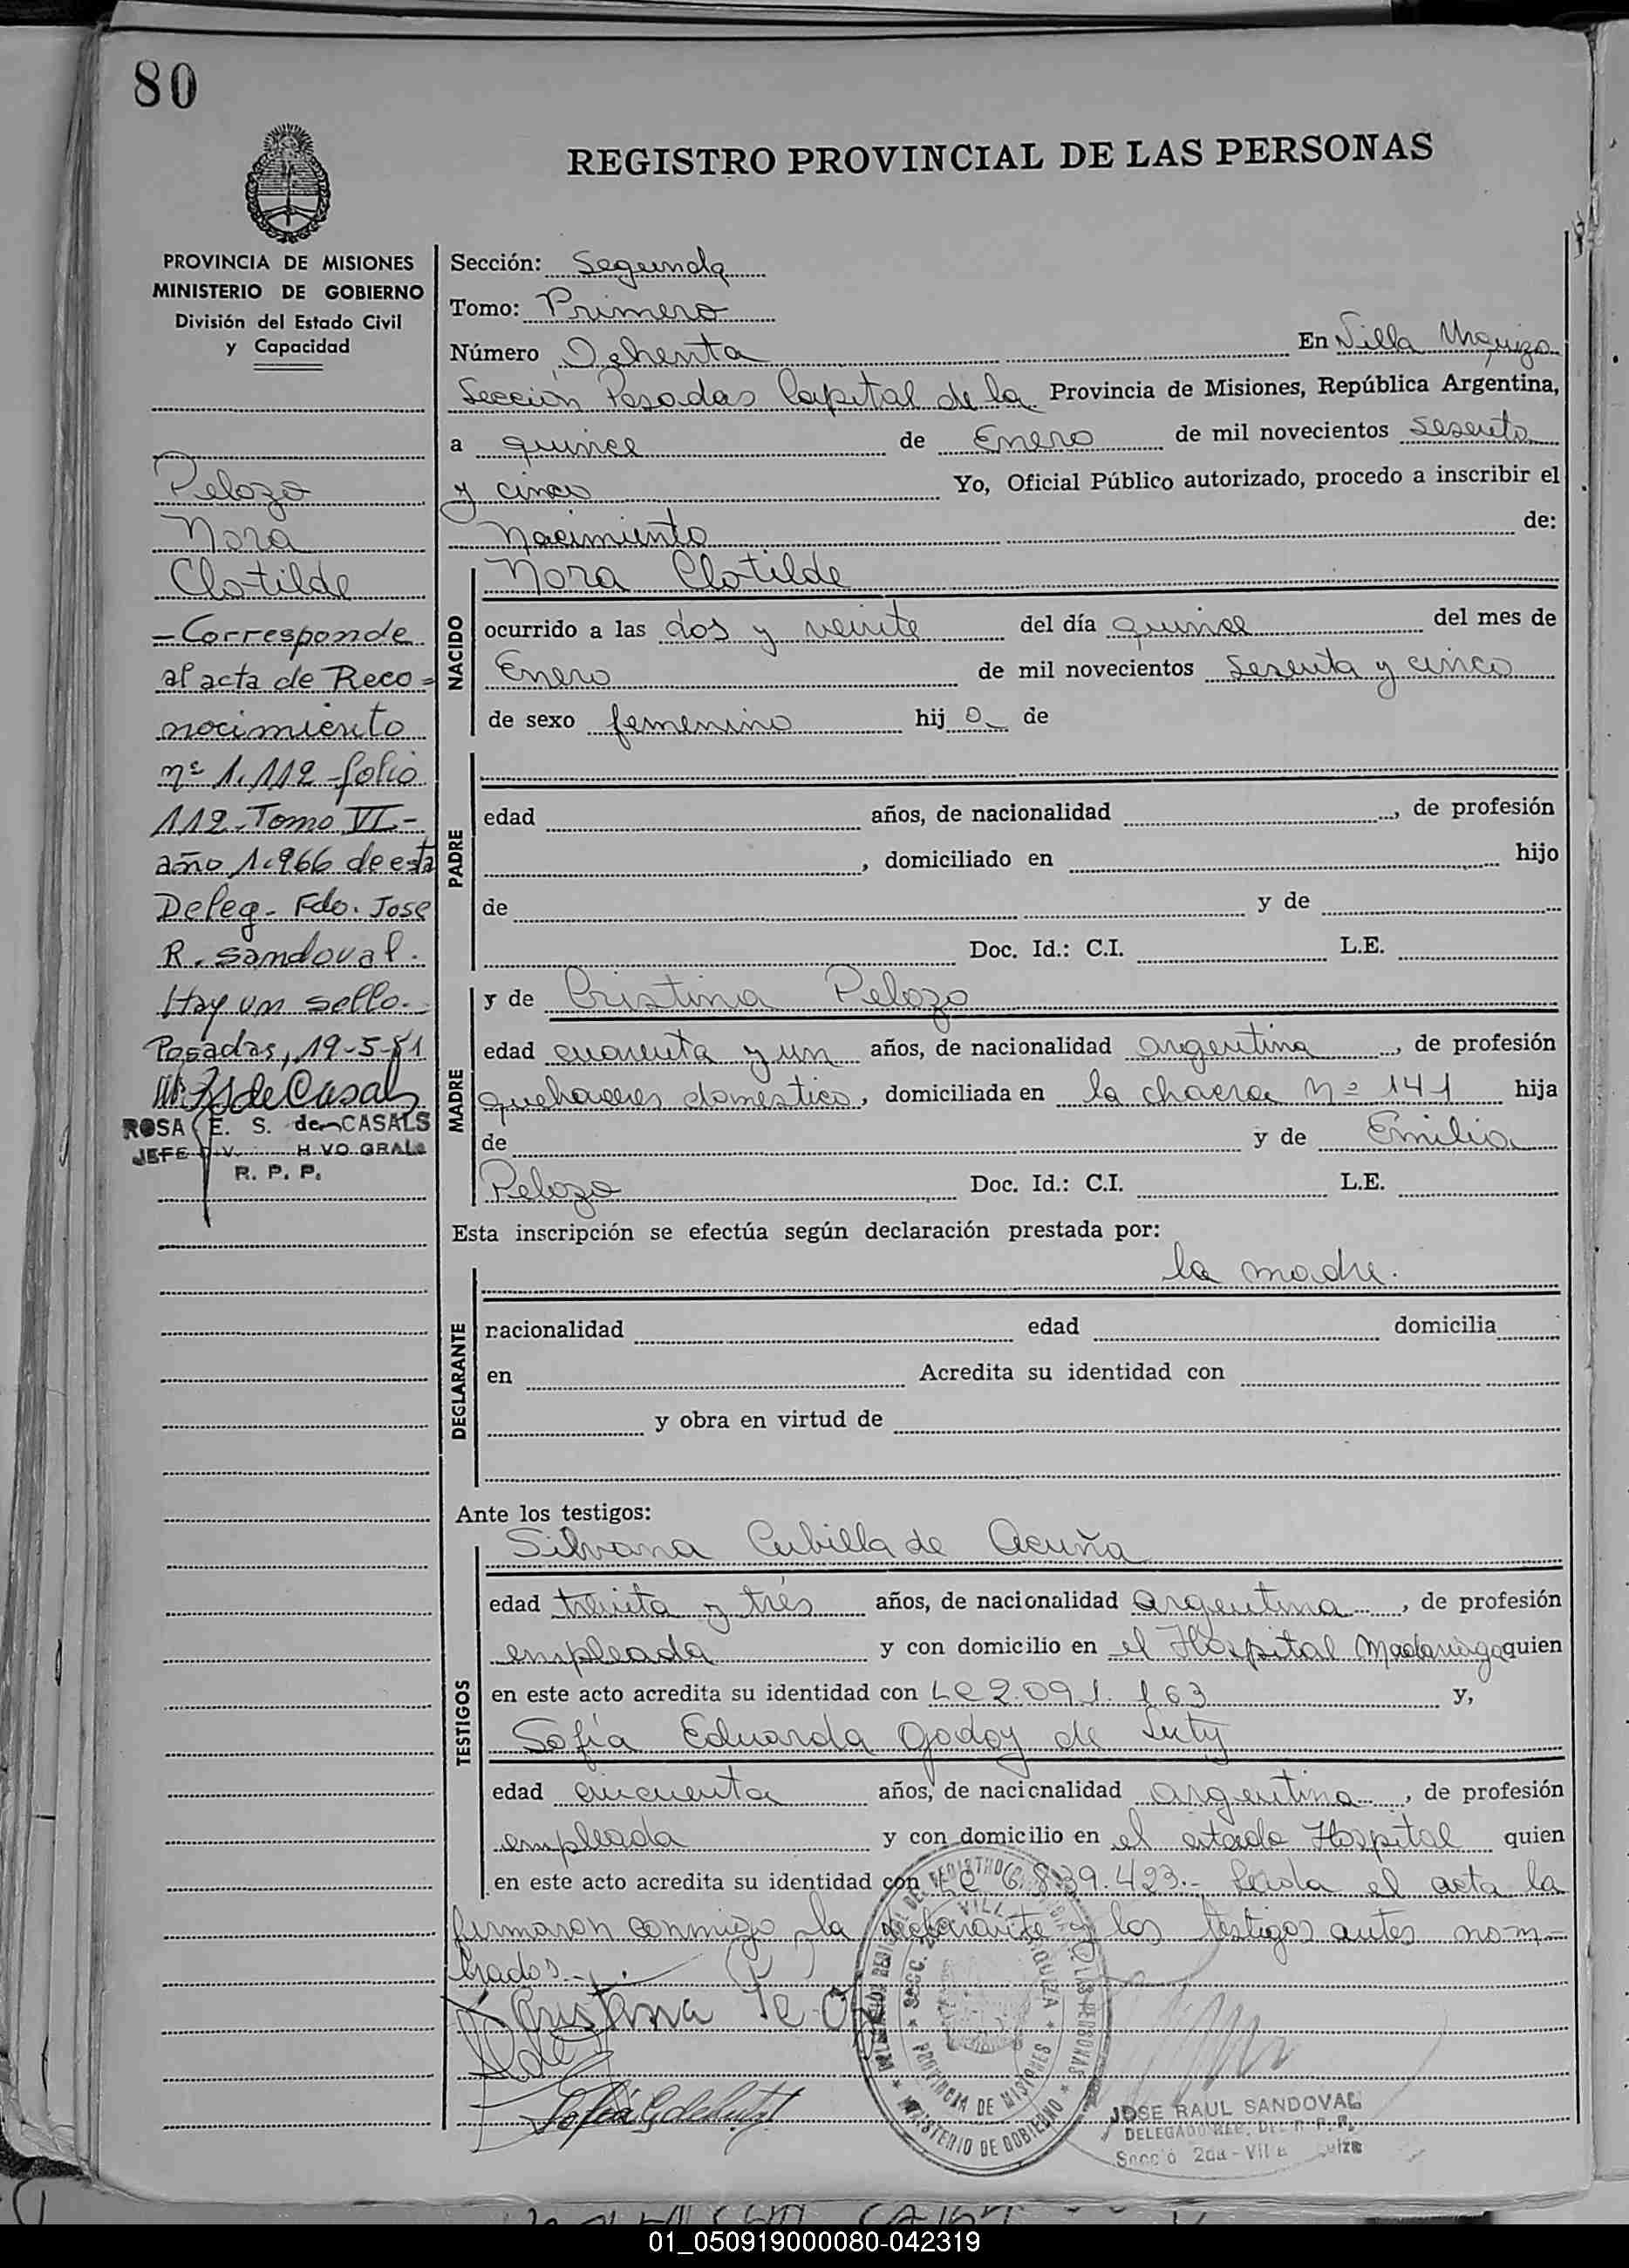 80
REGISTRO PROVINCIAL DE LAS PERSONAS
PROVINCIA DE MISIONES
MINISTERIO DE GOBIERNO
División del Estado Civil
y Capacidad
Pelozo
Nora
Clotilde
- Corresponde
al acta de Reco=
nocimiento
nº 1.112-folio
112-Tomo VI-
año 1.966 de esta
Deleg- Fdo. Jose
R. Sandoval.
Hay un sello.-
Posadas, 19-5-81
ROSA E. S. de CASALS
JEFE DIV. H VO GRAL
R. P. P.
Sección: Segunda
Tomo: Primero
Número Ochenta En Villa Urquiza
Sección Posadas Capital de la Provincia de Misiones, República Argentina,
a quince de Enero de mil novecientos sesenta
y cinco Yo, Oficial Público autorizado, procedo a inscribir el
Nacimiento de:
NACIDO
Nora Clotilde
ocurrido a las dos y veinte del día quince del mes de
Enero de mil novecientos sesenta y cinco
de sexo femenino hij a de
PADRE
edad años, de nacionalidad , de profesión
, domiciliado en hijo
de y de
Doc. Id.: C.I. L.E.
MADRE
y de Cristina Pelozo
edad cuarenta y un años, de nacionalidad argentina , de profesión
quehaceres domestico, domiciliada en la chacra Nº 141 hija
de y de Emilia
Pelozo Doc. Id.: C.I. L.E.
Esta inscripción se efectúa según declaración prestada por:
DECLARANTE
la madre.
nacionalidad edad domicilia
en Acredita su identidad con
y obra en virtud de
Ante los testigos:
TESTIGOS
Silvana Cubilla de Acuña
edad treinta y trés años, de nacionalidad argentina , de profesión
empleada y con domicilio en el Hospital Madariaga quien
en este acto acredita su identidad con LC 2.091.163 y,
Sofía Eduarda Godoy de
edad cincuenta años, de nacionalidad argentina , de profesión
empleada y con domicilio en el citado Hospital quien
en este acto acredita su identidad con LC 6.839.423.- Leida el acta la
firmaron conmigo la declarante y los testigos antes nom=
brados.-
Cristina
MINISTERIO DE GOBIERNO
PROVINCIA DE MISIONES
JOSE RAUL SANDOVAL
DELEGADO REG. DEL R. P. P.
01_050919000080-042319